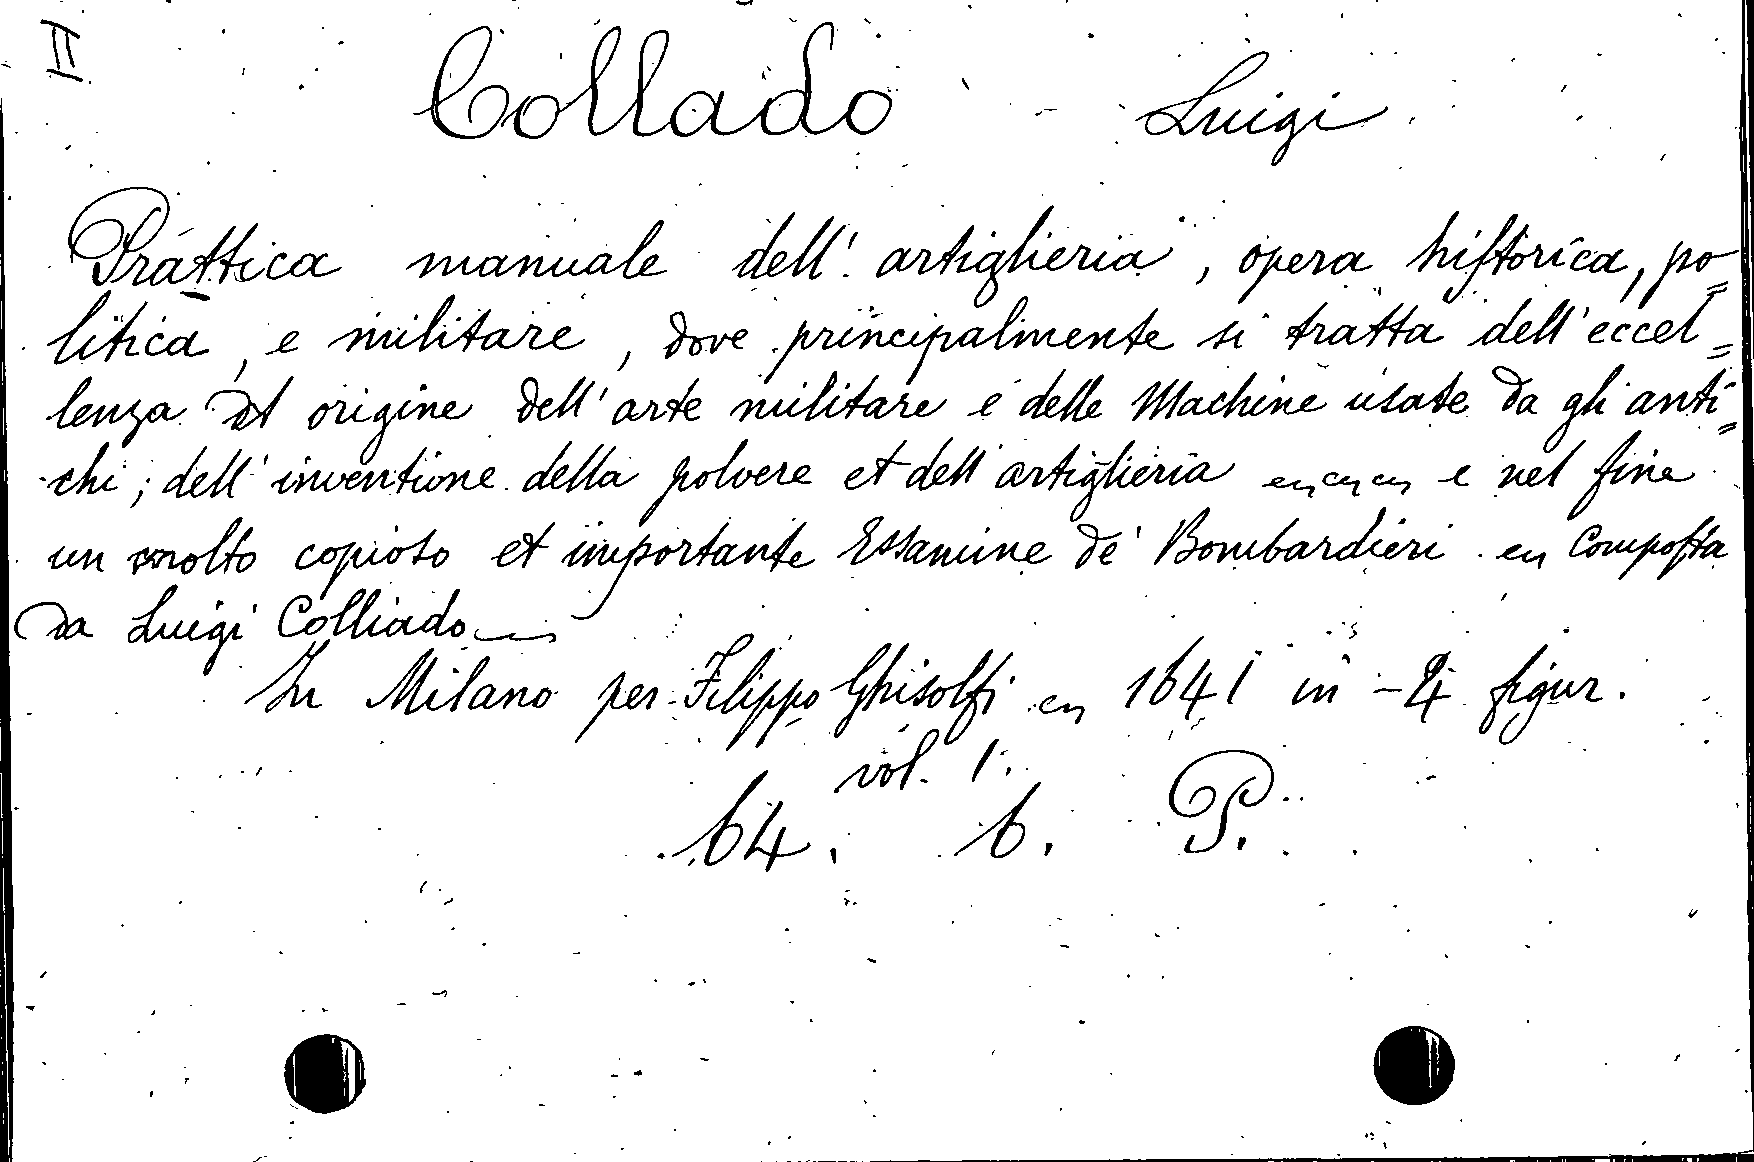 II
Collado Luigi
Prattica manuale dell'artiglieria, opera hiſtorica, po=
litica, e militare, dove principalmente si tratta dell'eccel=
lenza et origine dell'arte militare e delle Machine usate da gli anti=
chi; dell'inventione della polvere et dell'artiglieria e nel fine
un molto copioso et importante Essamine de' Bombardieri Compoſta
da Luigi Colliado
In Milano per Filippo Ghisolfi 1641 in-4 figur.
vol. 1.
64. 6. P.